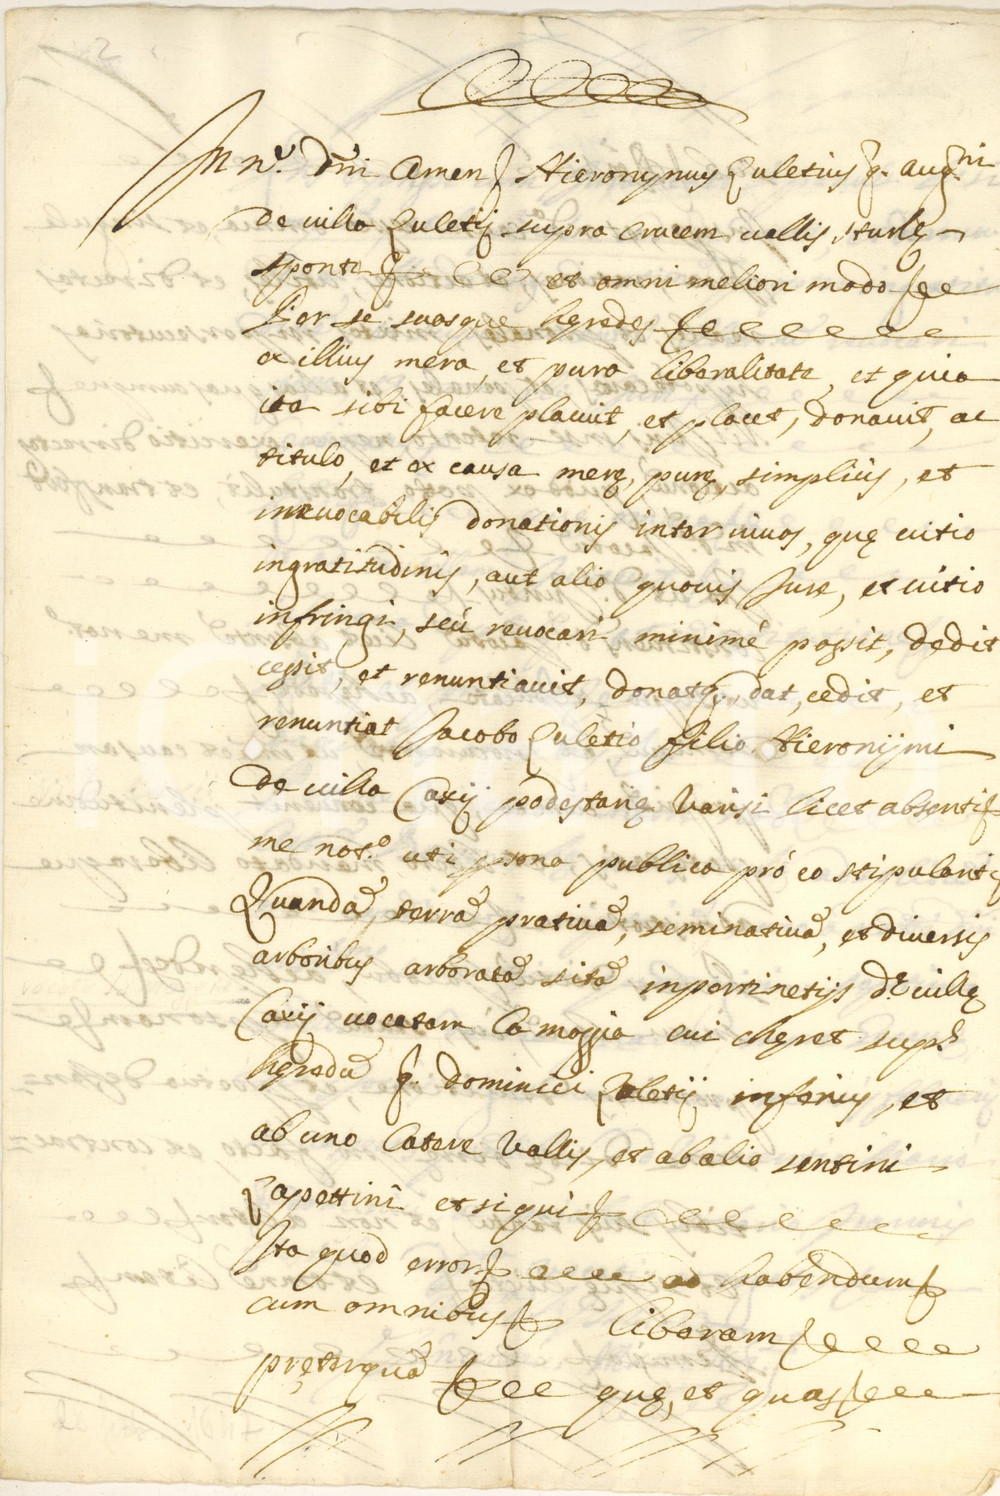 In n.e Dñi Amen Hieronymus Zuletius q. Aug.ni
de villa Zuletij supra Crucem vallis sturlę
sponte et omni meliori modo
Per se suosque hęredes
ex illius mera, et pura liberalitate, et quia
ita sibi facere placuit, et placet, donavit, ac
titulo, et ex causa merę, purę, simplicis, et
irrevocabilis donationis inter vivos, quę vitio
ingratitudinis, aut alio quovis Jure, et vitio
infringi, seù revocari minimè possit, dedit
cessit, et renuntiavit, donatq., dat, cedit, et
renuntiat Jacobo Zuletio filio Hieronijmi
de villa Caxij podestarię Varisi licet absenti
me not.o uti psona publica prò eo stipulanti
Quandã, terrã prativã, seminativã, et diversis
arboribus arboratã sitã in pertinetijs d.ę villę
Caxij vocatam la moggia cui cheret supr.s
hęredũ q. Dominici Zuletij inferius, et
ab uno latere Vallis, et ab alio sentini
Zapettini et siqui
Ita quod error ad habendum
cum omnibus liberam
pręterquã quę, et quas